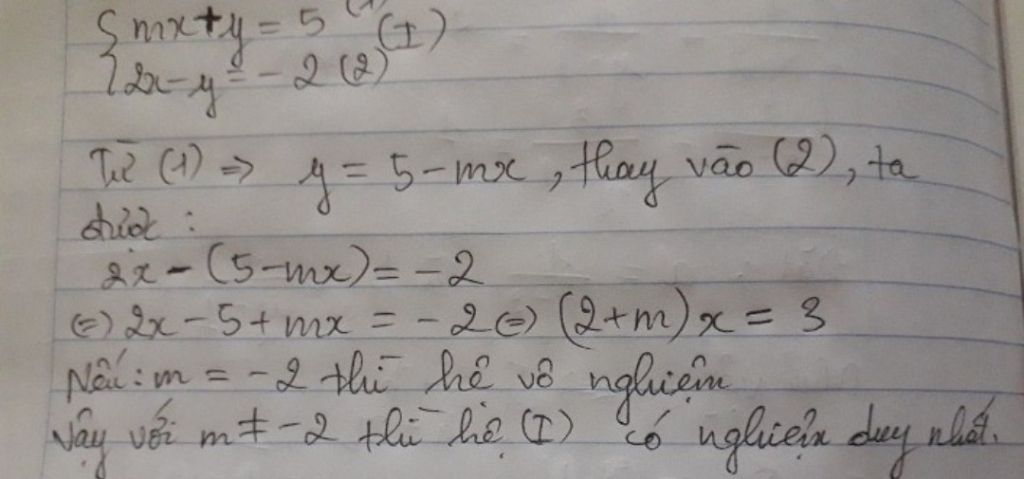 { mx+y = 5 (1) (I)
{ 2x-y = -2 (2)
Từ (1) => y = 5-mx, thay vào (2), ta
được:
2x - (5-mx) = -2
<=> 2x - 5 + mx = -2 <=> (2+m)x = 3
Nếu: m = -2 thì hệ vô nghiệm
Vậy với m ≠ -2 thì hệ (I) có nghiệm duy nhất.